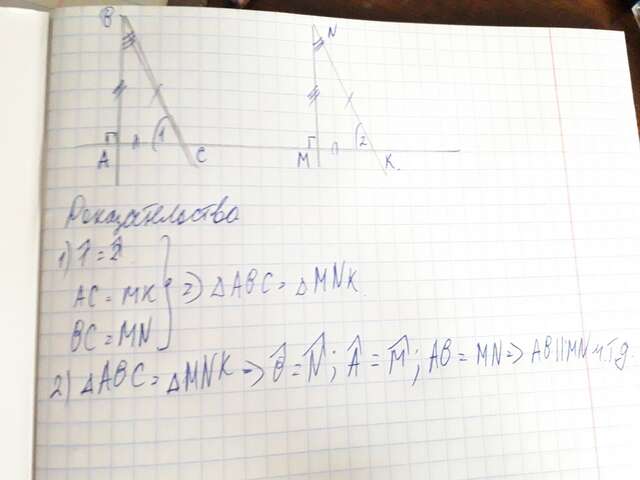 B N
1 2
A C M K
Доказательство
1) 1̂ = 2̂
AC = MK
BC = MN
} => △ABC = △MNK.
2) △ABC = △MNK => B̂ = N̂; Â = M̂; AB = MN => AB || MN и т.д.